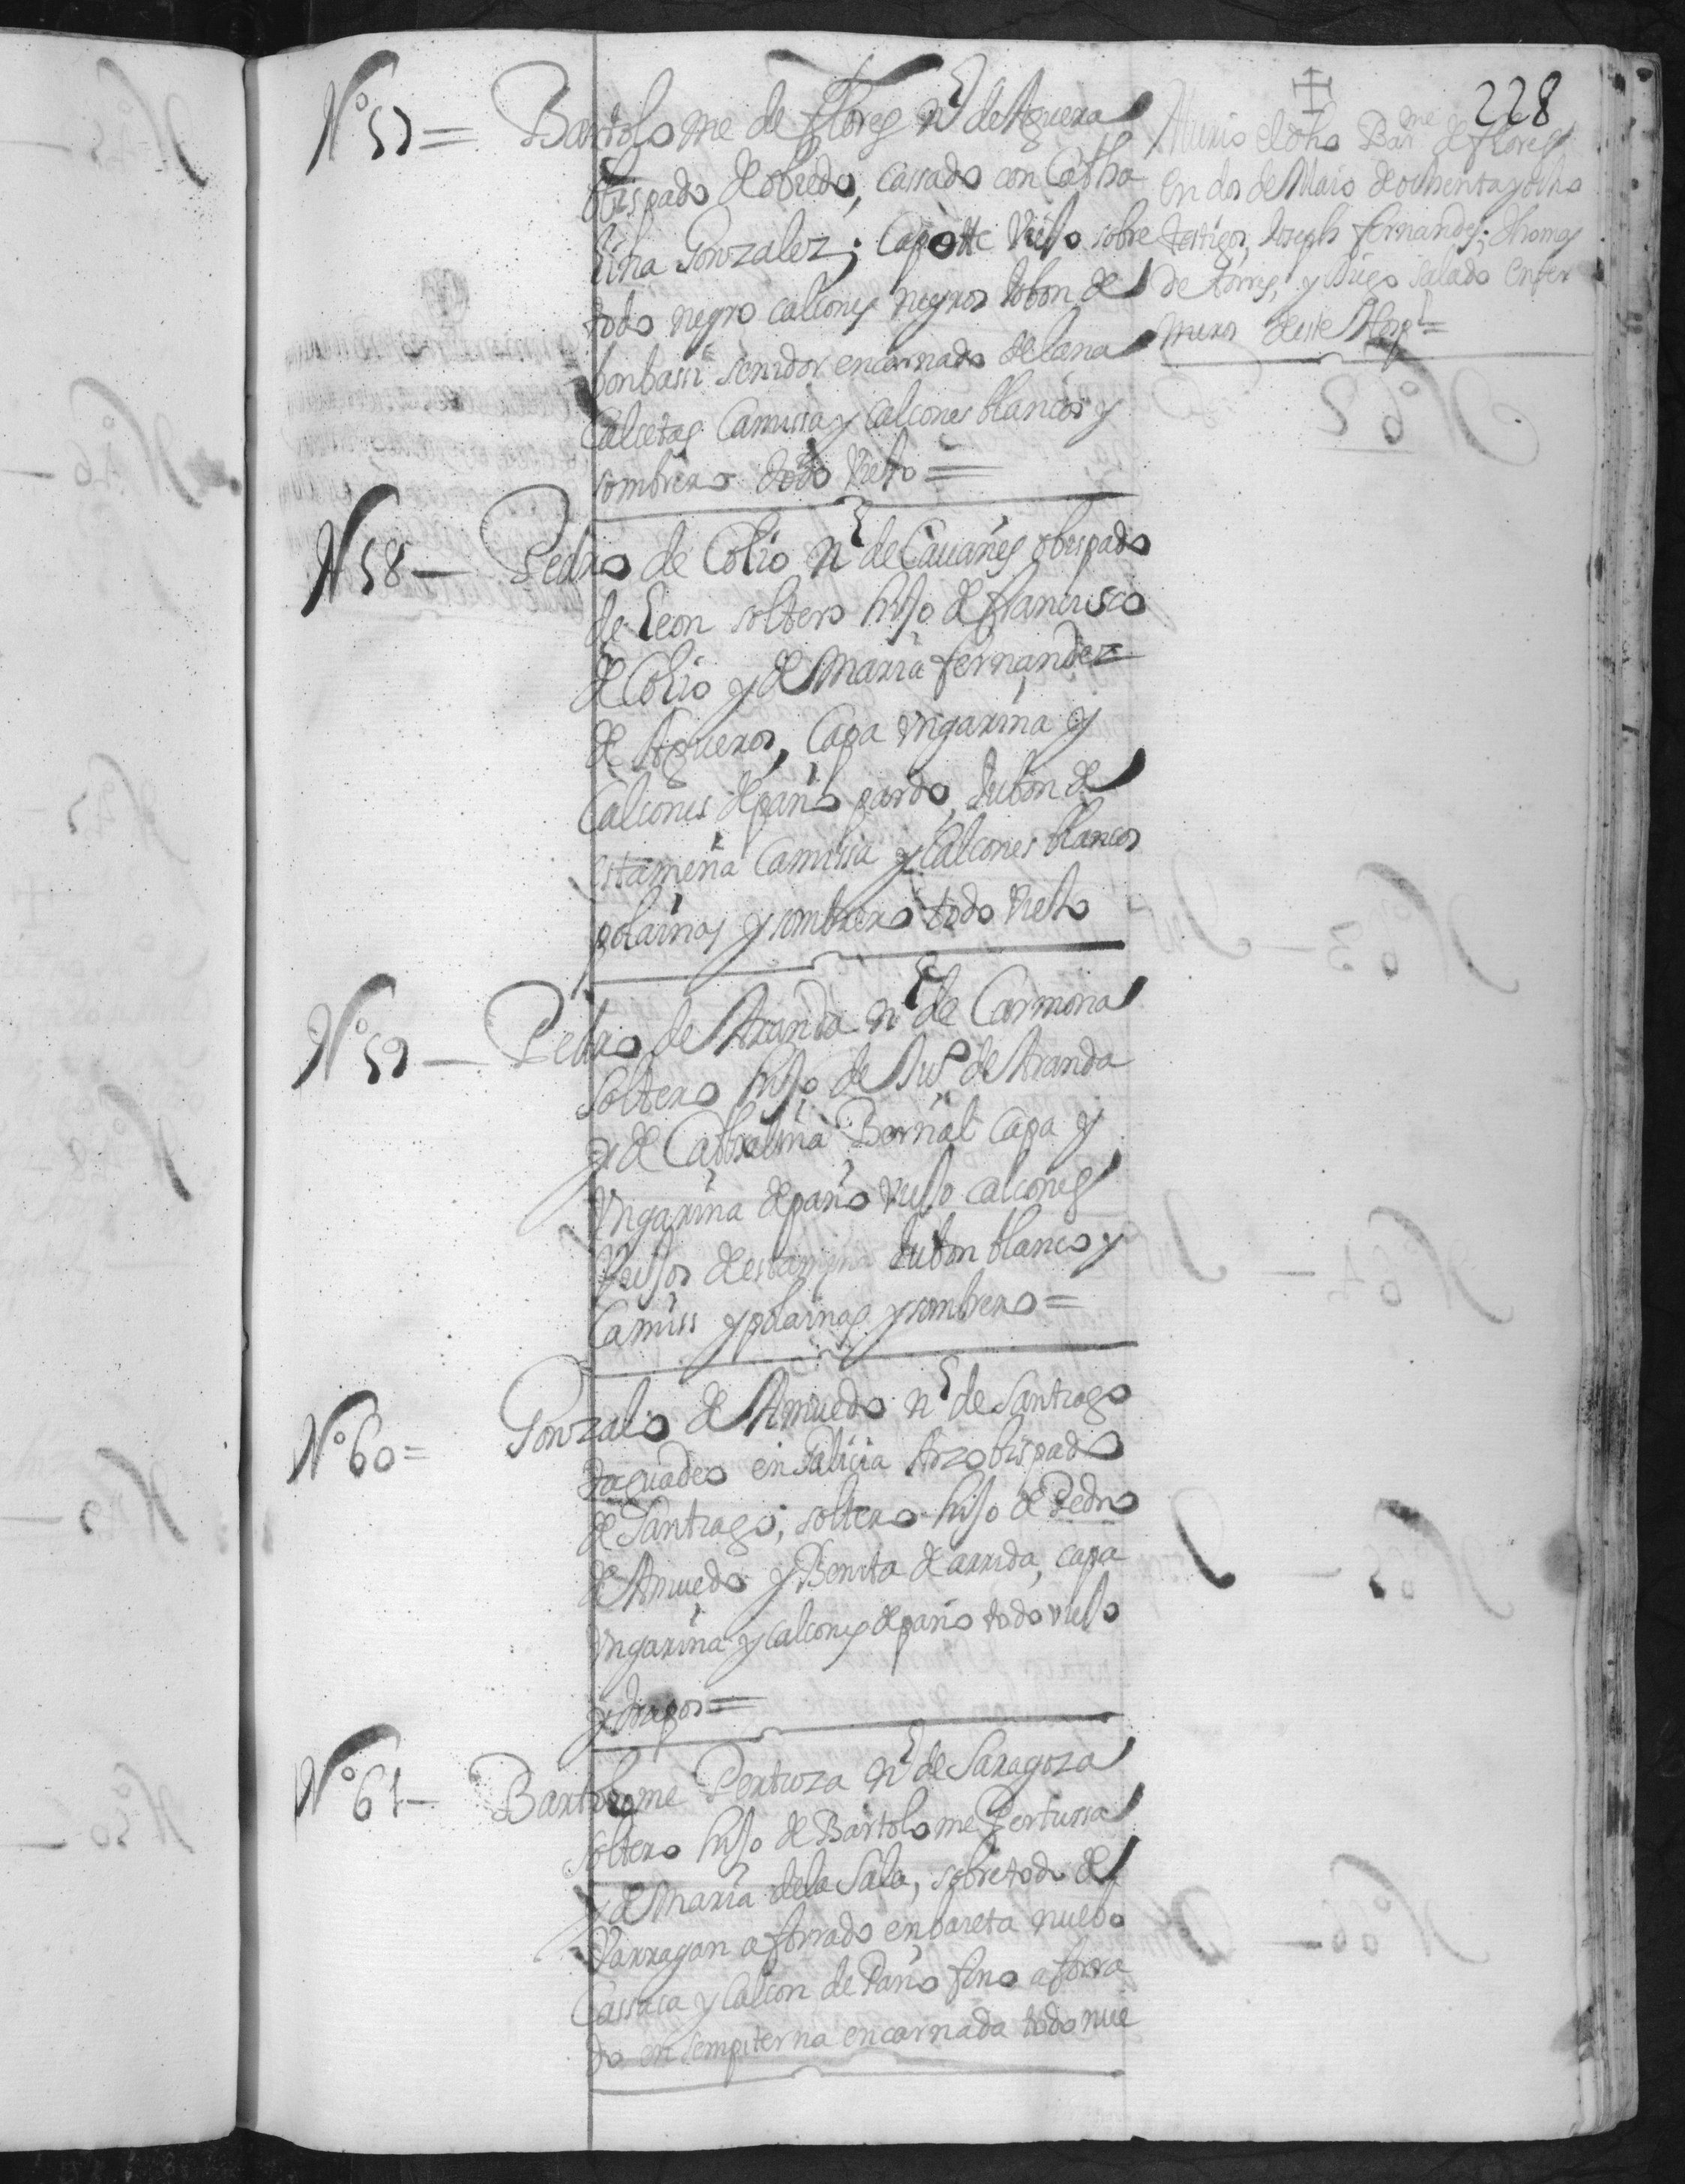 228
Nº 57 = Bartolome de flores nl de Aguera
obispado de obiedo, cassado con Catha
lina Gonzalez; Capotte Viejo sobre
todo negro calcones negros Jobon de
bonbassi senidor encarnado de lana
Calcetas Camissa y Calcones blancos y
sombrero todo Viejo =
✝
Murio el dho Barme de flores
en dos de Maio de ochenta y ocho
testigos, Joseph fernandes; thomas
de torres, y Diego Salado enfer
meros deste Hospl =
N 58 — Pedro de Colio nl de Cauañes obispado
de Leon soltero hijo de francisco
de Colio y de Maria fernandez =
de Agueros, Capa Ungarina y
Calcones de paño pardo, Jubon de
estameña Camissa y Calcones blancos
polainas y sombrero todo Viejo
Nº 59 — Pedro de Aranda nl de Carmona
Soltero hijo de Juº de Aranda
y de Cathalina Bernal Capa y
Ungarina de paño Viejo calcones
Viejos de estameña Jubon blanco y
Camiss y polainas y sombrero =
Nº 60 = Gonzalo de Amuedo nl de Santiago
en Galicia Arzobispado
de Santiago; soltero hijo de Pedro
de Amuedo y Benita de arrida, capa
Ungarina y calcones de paño todo viejo
y trapos =
Nº 61 — Bartolome Pertuza nl de Saragoza
soltero hijo de Bartolome Pertussa
y de Maria de la Sala, sobretodo de
Varragan aforrado en bareta nuebo
Cassaca y Calcon de Paño fino aforra
do en sempiterna encarnada todo nue